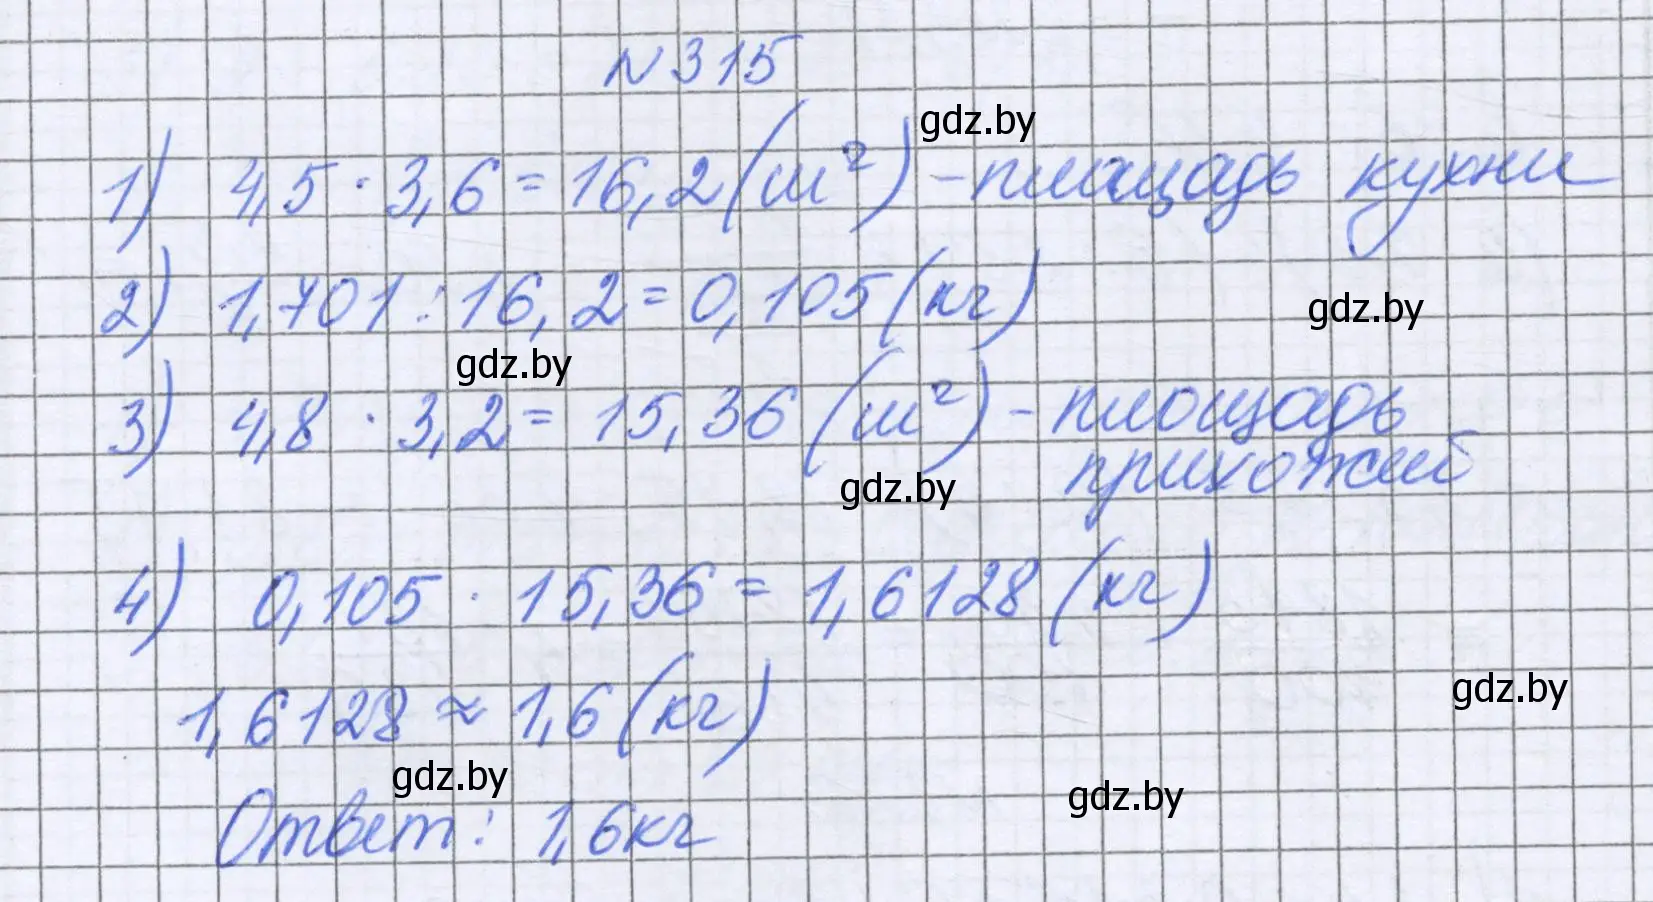 N315
gdz.by
1) 4,5 · 3,6 = 16,2 (м²) - площадь кухни
2) 1,701 : 16,2 = 0,105 (кг)
gdz.by
gdz.by
3) 4,8 · 3,2 = 15,36 (м²) - площадь
прихожий
gdz.by
4) 0,105 · 15,36 = 1,6128 (кг)
1,6128 ≈ 1,6 (кг)
gdz.by
gdz.by
gdz.by
Ответ: 1,6кг